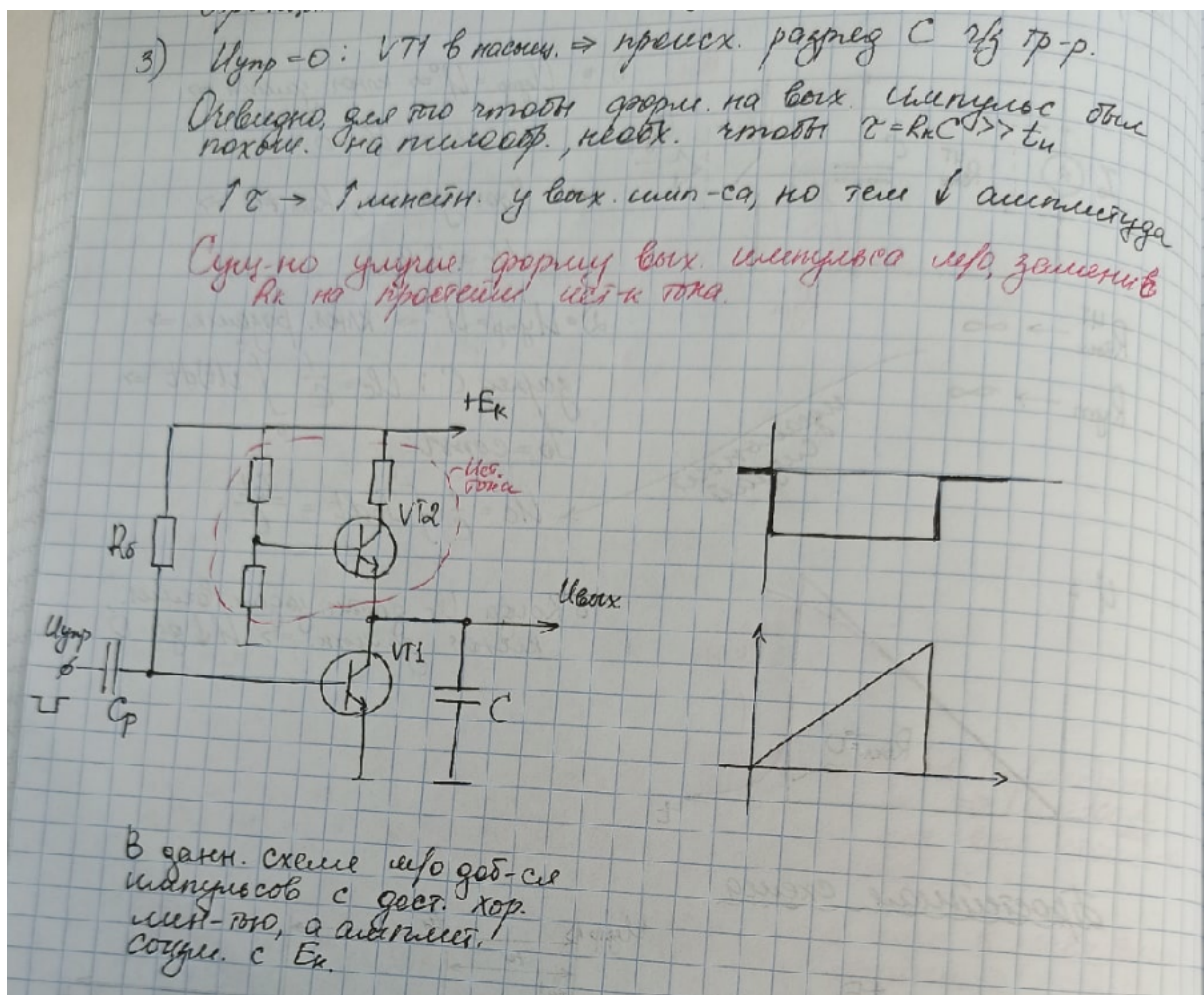 3) Uупр=0: VT1 в насыщ. ⇒ происх. разряд C ч/з тр-р.
Очевидно, для того чтобы форм. на вых. импульс был
похож. на пилообр., необх. чтобы τ=RкC >> tи
↑τ → ↑ линейн. у вых. имп-са, но тем ↓ амплитуда
Сущ-но улучш. форму вых. импульса м/о, заменив
Rк на простейш. ист-к тока.
+Eк
Ист.
тока
VT2
Rб
Uвых
Uупр
VT1
Cр
C
В данн. схеме м/о доб-ся
импульсов с дост. хор.
лин-тью, а амплит.
соизм. с Eк.